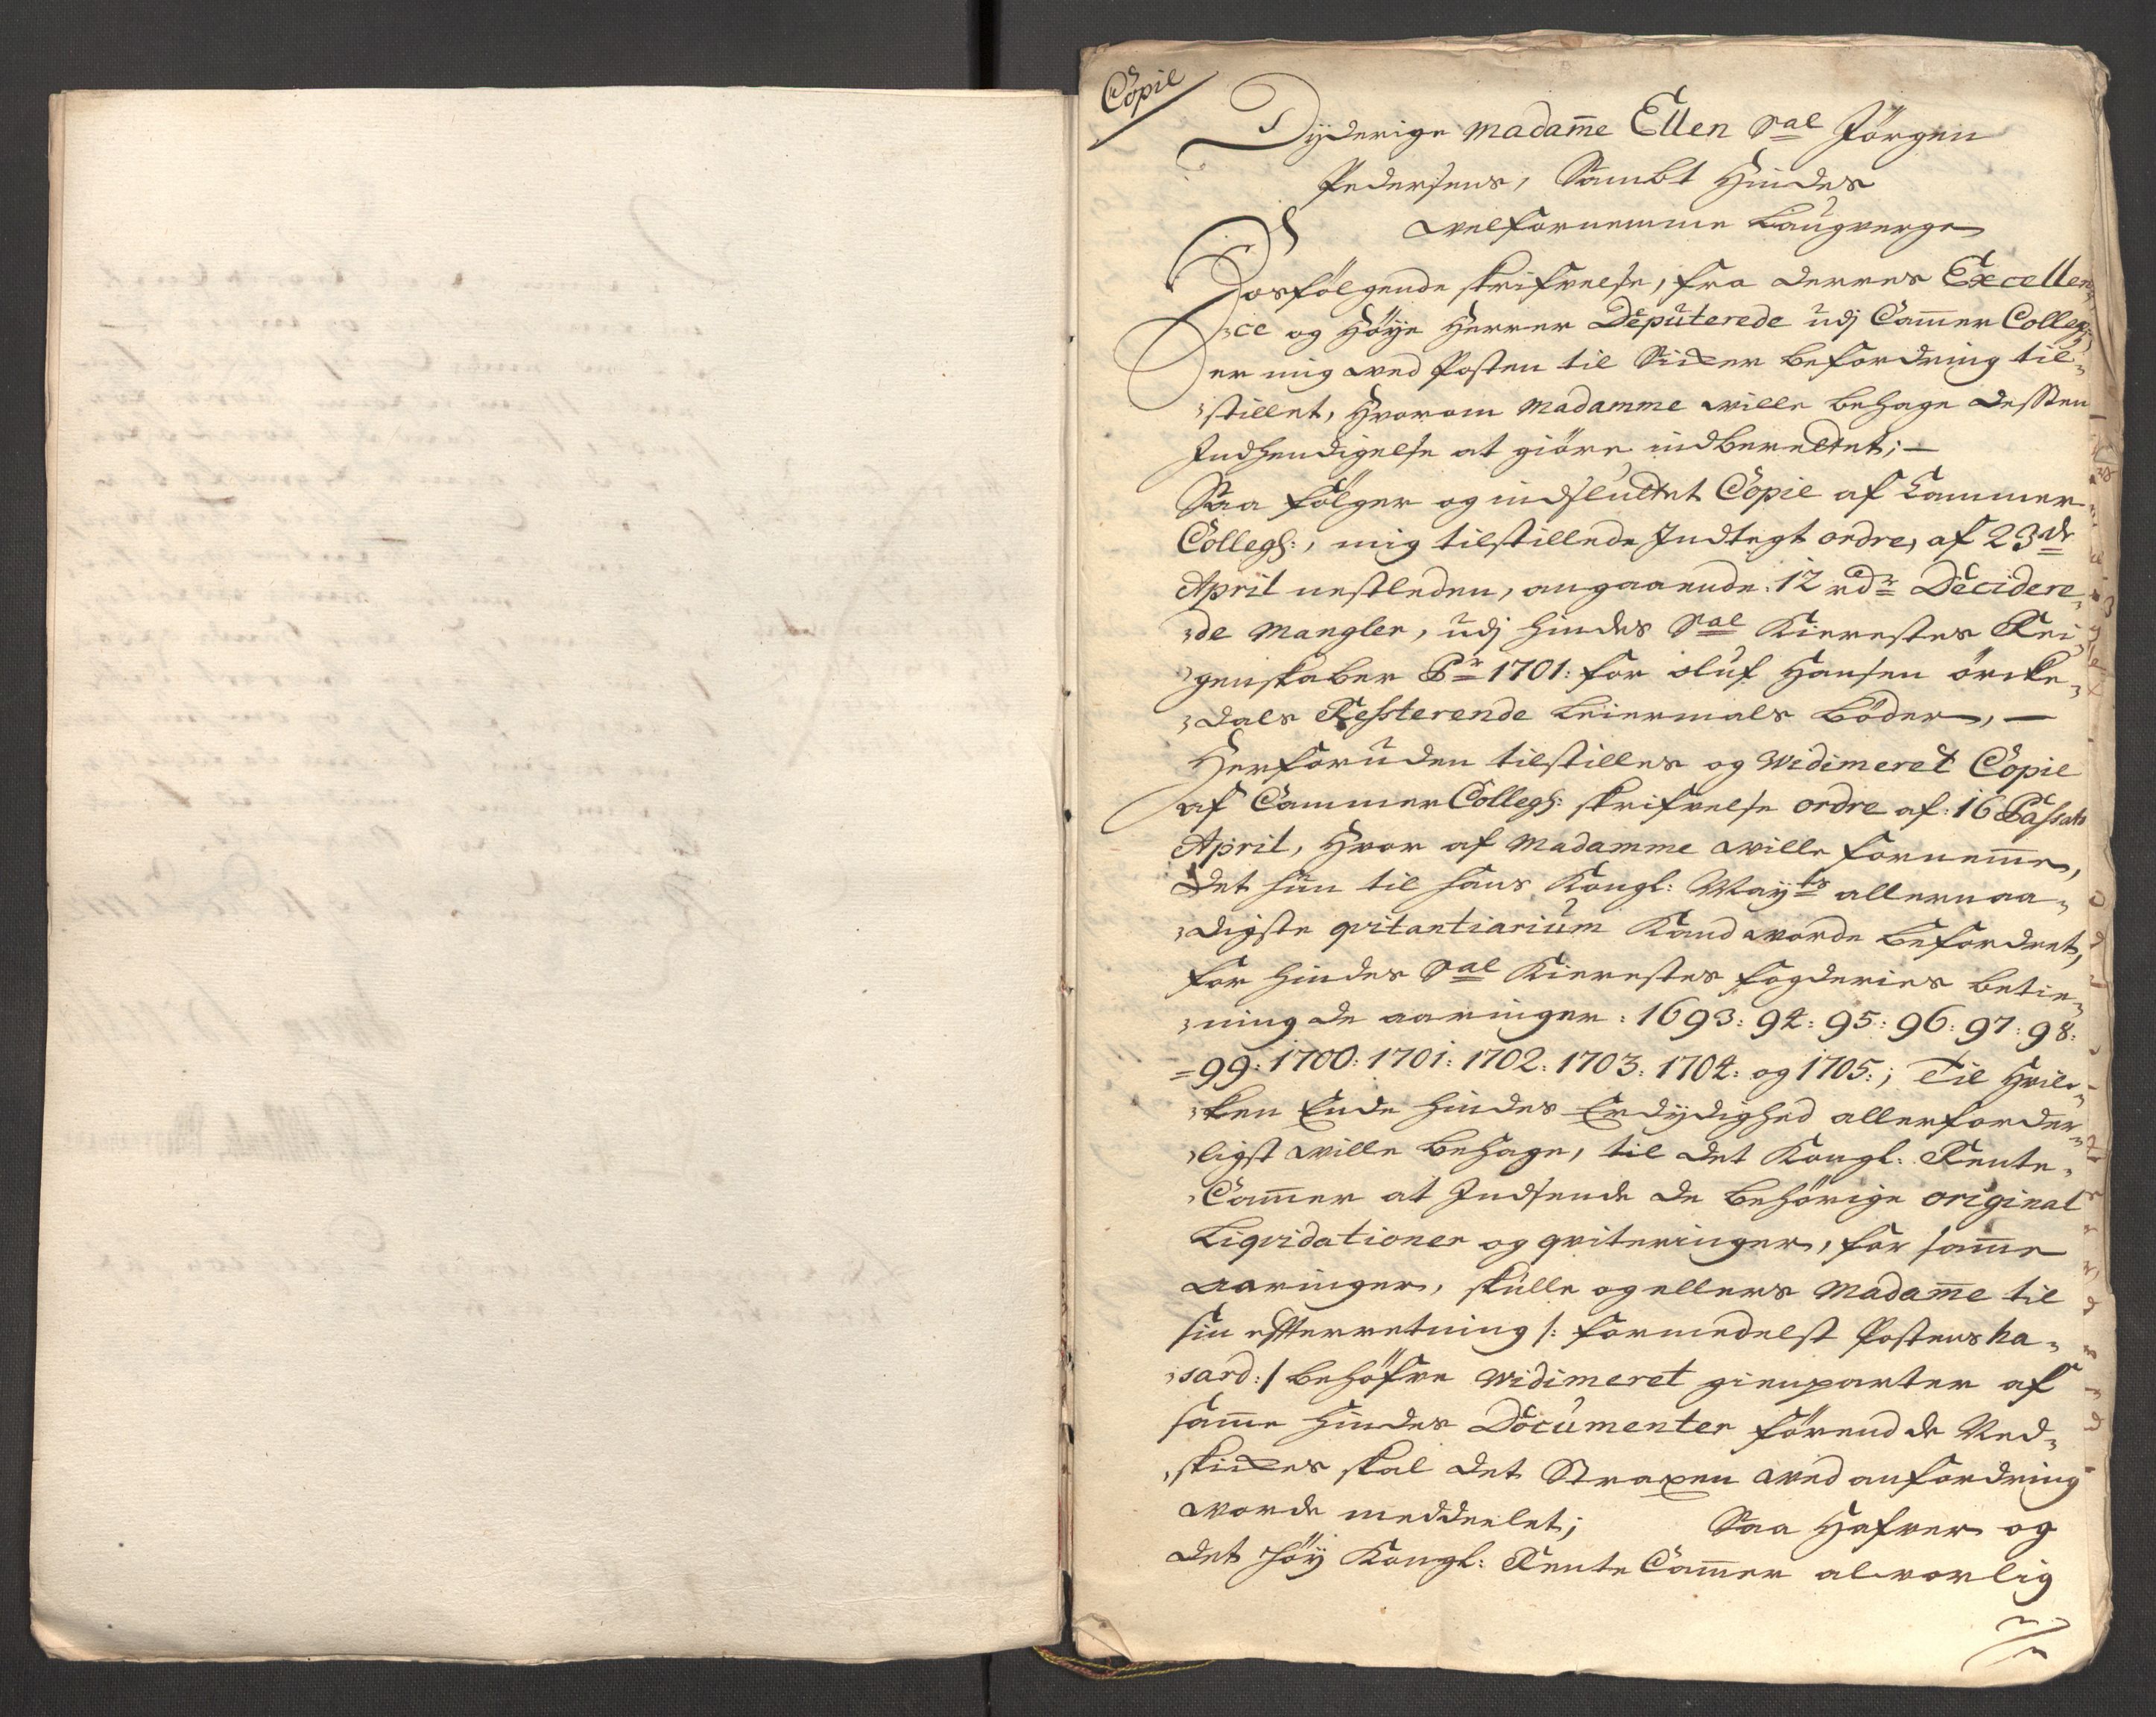 Copie
Dyderige Madam̅e Ellen Sal Jörgen
Pedersens, Sambt Hindes
Welfornemme Laugverge
Hosfölgende skrifvelse, fra Derres Excellen„
„ce og Höye Herrer Deputerede udj Cam̅er Collegj
er mig ved Posten til Sikker befordring til„
„stillet, Hvorom Madamme wille behage dessen
Indhendigelse at giöre indberettet; —
Saa fölger og indsluttet Copie af Cammer
Collegs:, mig tilstillede Indtegt ordre, af 23de
April nestleden, angaaende. 12 rdr Decidere„
„de Mangler, udj hindes Sal Kierestes Rei„
„genskaber Pr 1701: for oluf Hansen örcke„
„dals Ressterende Leiermals böder, —
Herforuden tilstilles og Widimeret Copie
af Cammer Collegs: skrifvelse ordre af: 16 Passato
April, Hvor af Madamme wille fornem̅e,
det hun til hans Kongl: Mayts allernaa„
„digste qvitantiarium Kand worde befordret,
for hindes Sal Kierestes fogderies betie„
„ning de aaringer: 1693: 94: 95: 96: 97: 98:
=99: 1700: 1701: 1702: 1703: 1704: og 1705:; Til Hvil„
„ken Ende hindes Erdydighed allerforder„
„ligst wille behage, til det Kongl: Rente„
„Cam̅er at Indsende de behörige original
Liqvidationer og qviteringer, for sam̅e
aaringer, skulle og ellers Madam̅e til
sin effterretning /: formedelst Postens ha„
„sard: / behöfve widimeret gienparter af
sam̅e hindes Documenter förend de Ned„
„skikkes skal det Straxen wed anfordring
worde meddeelet; Saa Hafver og
det höy Kongl: Rente Cam̅er alvorlig